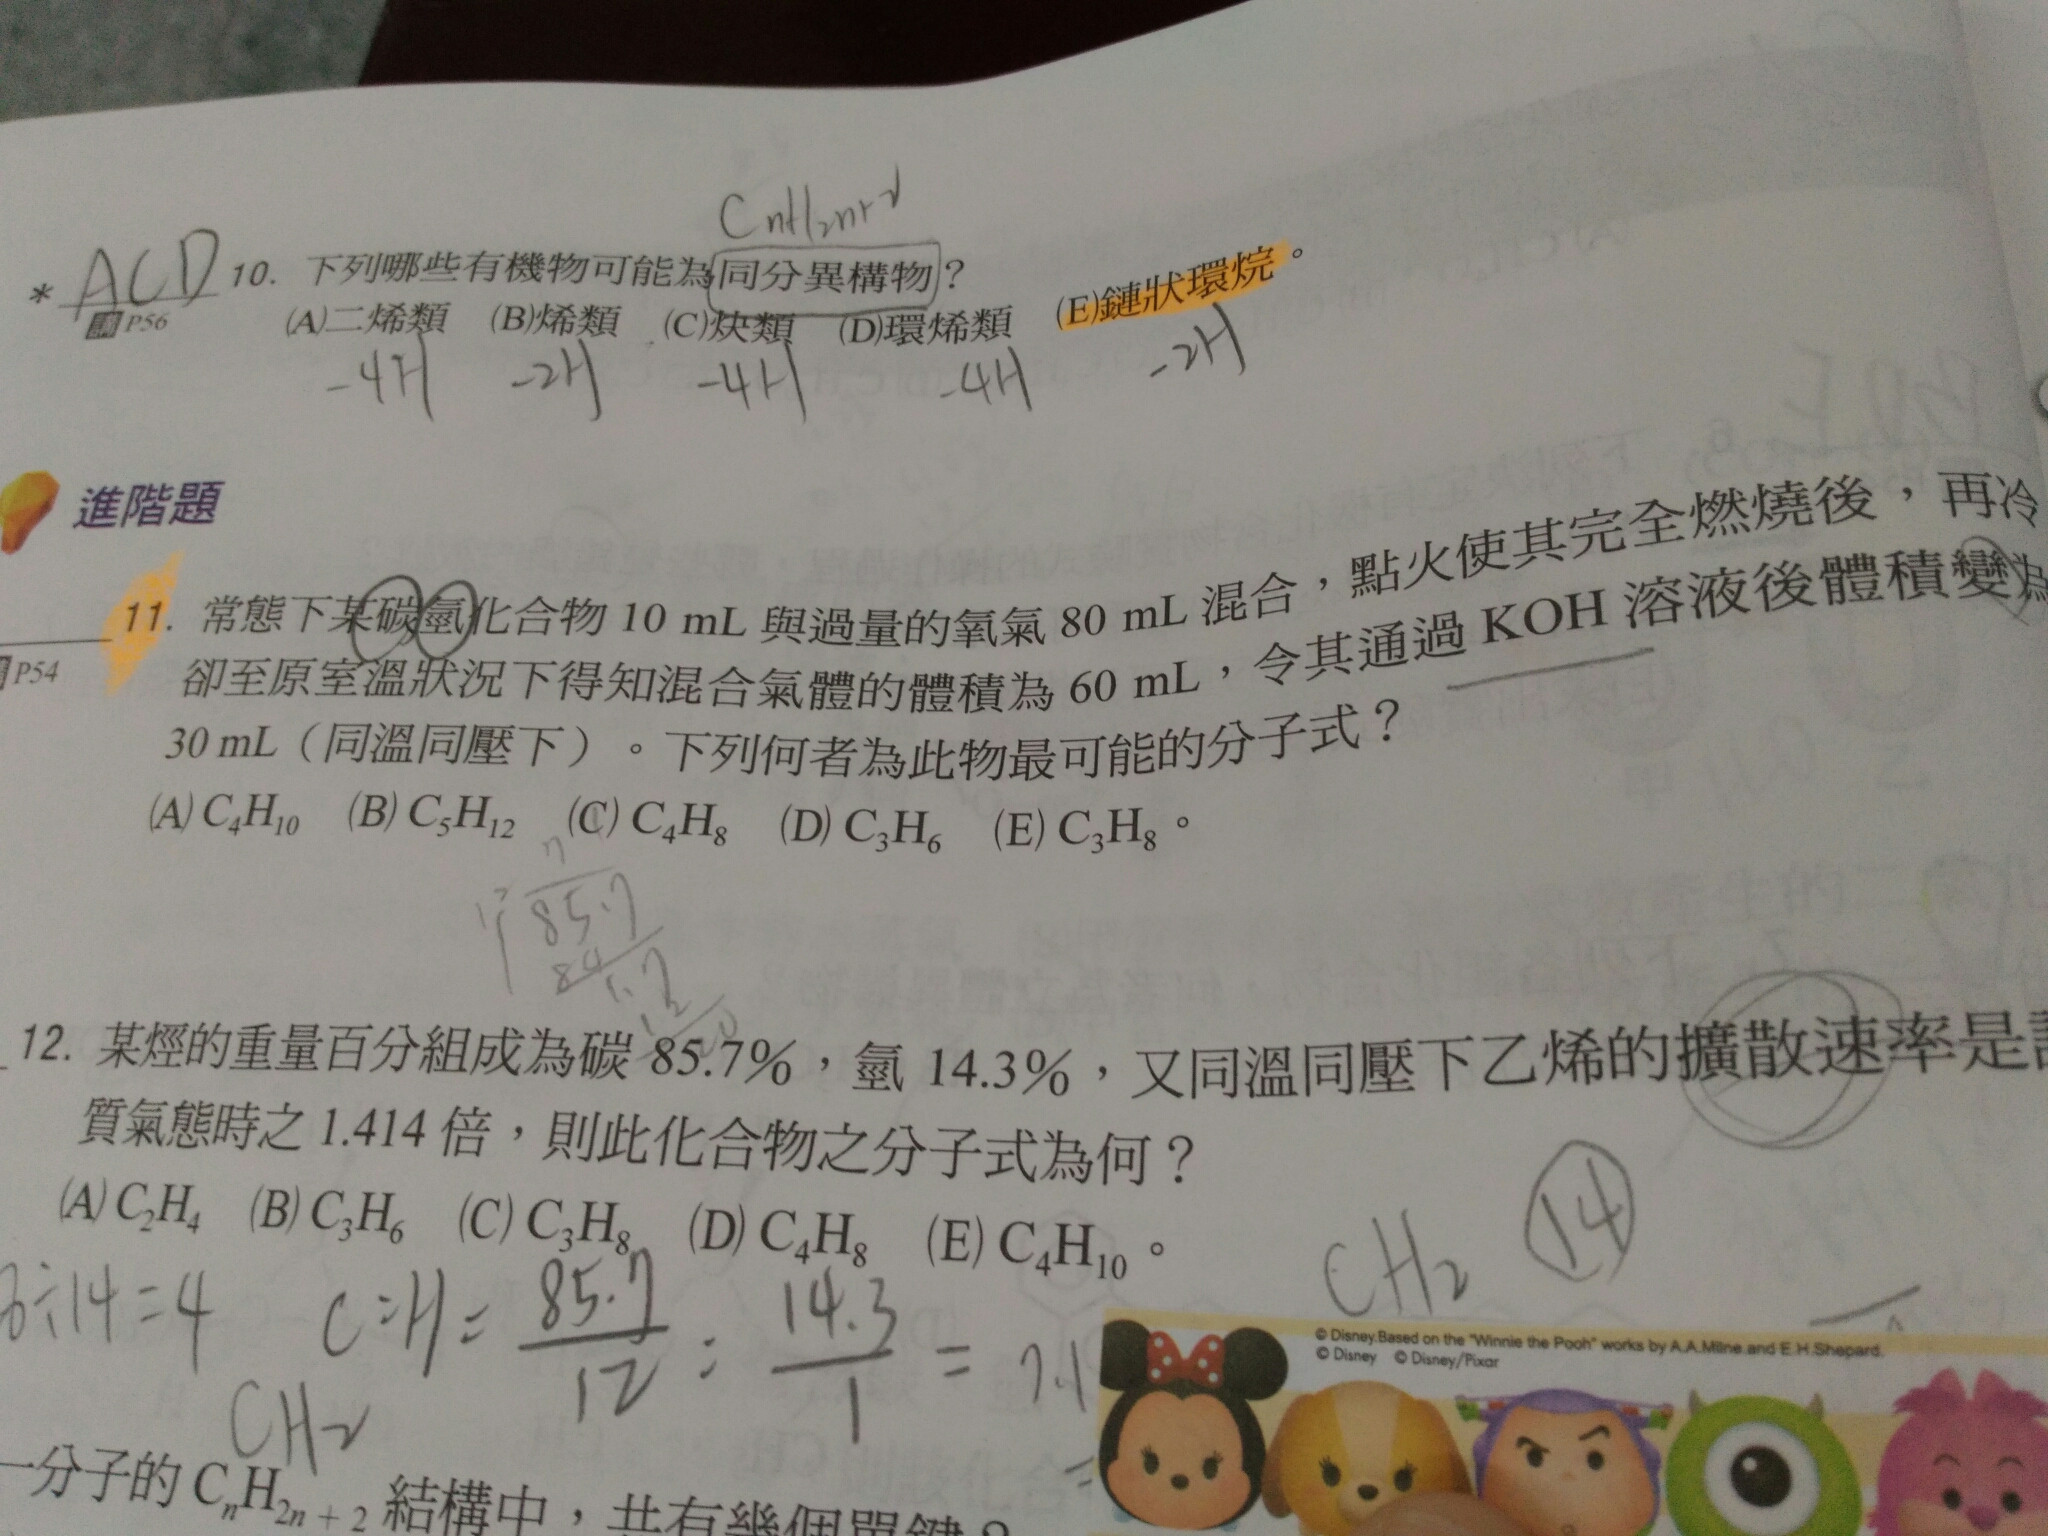 CnH2n+2
* ACD 10. 下列哪些有機物可能為同分異構物？
P56 (A)二烯類 (B)烯類 (C)炔類 (D)環烯類 (E)鏈狀環烷。
-4H -2H -4H -4H -2H
進階題
11. 常態下某碳氫化合物 10 mL 與過量的氧氣 80 mL 混合，點火使其完全燃燒後，再冷
P54 卻至原室溫狀況下得知混合氣體的體積為 60 mL，令其通過 KOH 溶液後體積變為
30 mL（同溫同壓下）。下列何者為此物最可能的分子式？
(A) C4H10 (B) C5H12 (C) C4H8 (D) C3H6 (E) C3H8。
7
12 85.7
84
1.7
12
12. 某烴的重量百分組成為碳 85.7%，氫 14.3%，又同溫同壓下乙烯的擴散速率是
質氣態時之 1.414 倍，則此化合物之分子式為何？
(A) C2H4 (B) C3H6 (C) C3H8 (D) C4H8 (E) C4H10。
CH2 14
÷14=4 C:H= 85.7/12 : 14.3/1 = 7.1
CH2
© Disney.Based on the "Winnie the Pooh" works by A.A.Milne and E.H.Shepard.
© Disney © Disney/Pixar
一分子的 CnH2n+2 結構中，共有幾個單鍵？